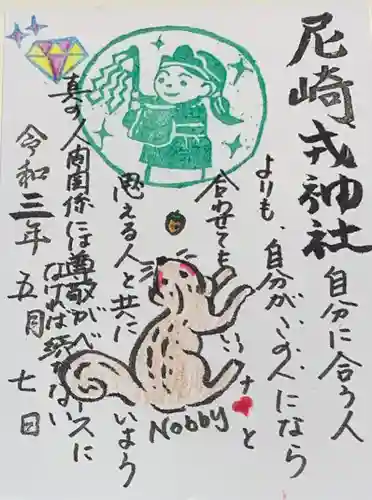 尼崎戎神社
自分に合う人
よりも、自分がいい人になら
合わせても
いいナ♥と
思える人と共に
いよう
真の人間関係には尊敬がベースに
なければ続かない
令和三年五月七日
Nobby